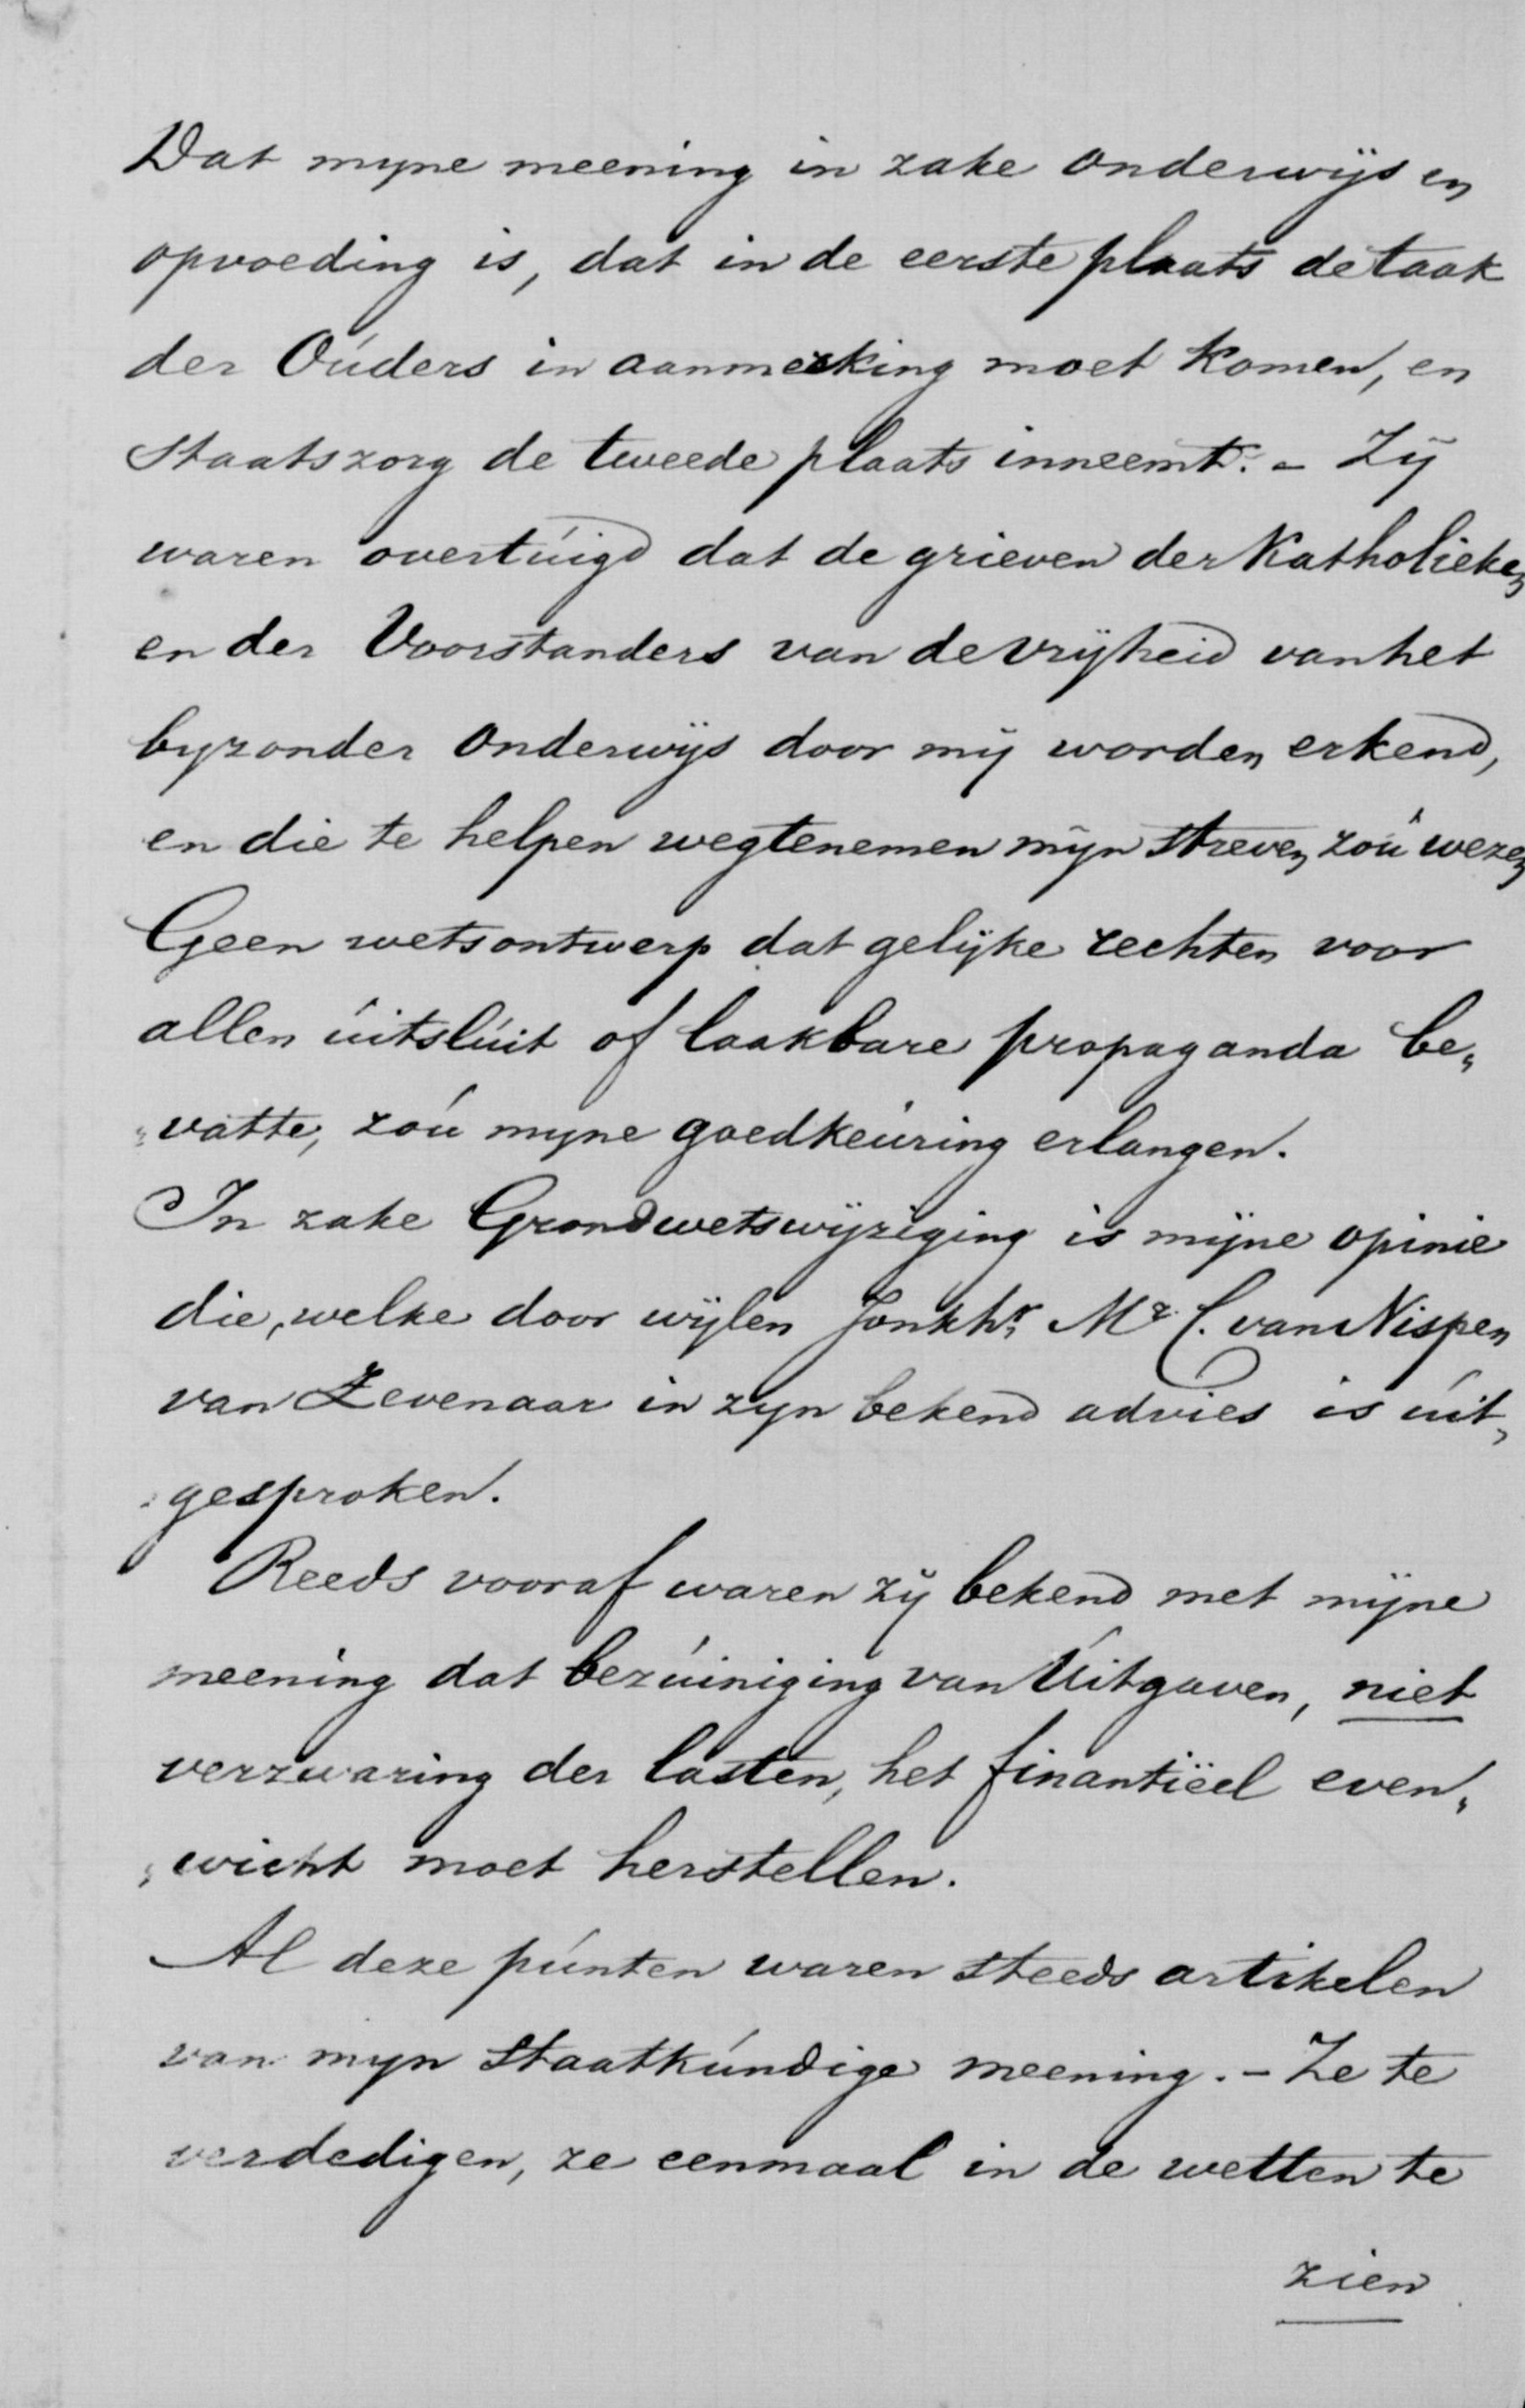 Dat myne meening in zake onderwijs en
opvoeding is, dat in de eerste plaats de taak
der Ouders in aanmerking moet komen, en
Staatszorg de tweede plaats inneemt. - Zij
waren overtuigd dat de grieven der Katholieken
en der Voorstanders van de vrijheid van het
byzonder onderwijs door mij worden erkend,
en die te helpen wegtenemen mijn streven zou wezen
Geen wetsontwerp dat gelijke rechten voor
allen uitsluit of laakbare propaganda be„
„vatte, zou myne goedkeuring erlangen.
In zake Grondwetswijziging is mijne opinie
die, welke door wijlen Jonkhr. Mr. C. van Nispen
van Zevenaar in zyn bekend advies is uit„
„gesproken.
Reeds vooraf waren zij bekend met mijne
meening dat bezuiniging van Uitgaven, niet
verzwaring der lasten, het finantiëel even„
„wicht moet herstellen.
Al deze punten waren steeds artikelen
van myn Staatkundige meening. - Ze te
verdedigen, ze eenmaal in de wetten te
zien